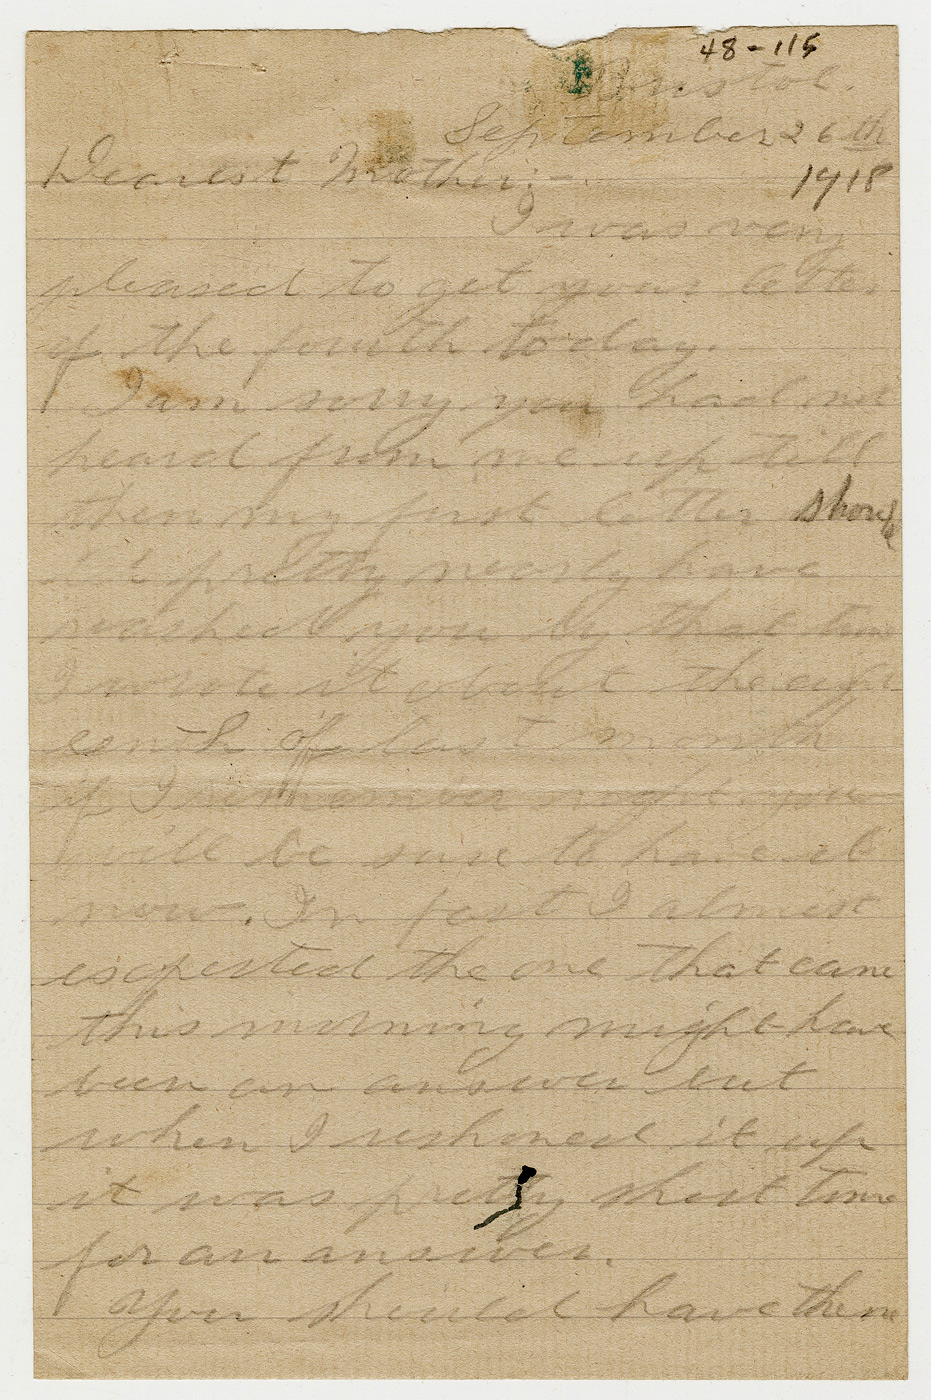 48-115
Bristol.
September 26th
Dearest Mother:- 1918
I was very
pleased to get your letter
of the fourth today.
I am sorry you had not
heard from me up till
then my first letter should
pretty nearly have
reached you by that time
I wrote it about the eight
eenth of last month
if I remember right. you
will be sure to have it
now. In fact I almost
expected the one that came
this morning might have
been an answer but
when I reckoned it up
it was pretty short time
for an answer.
You should have the